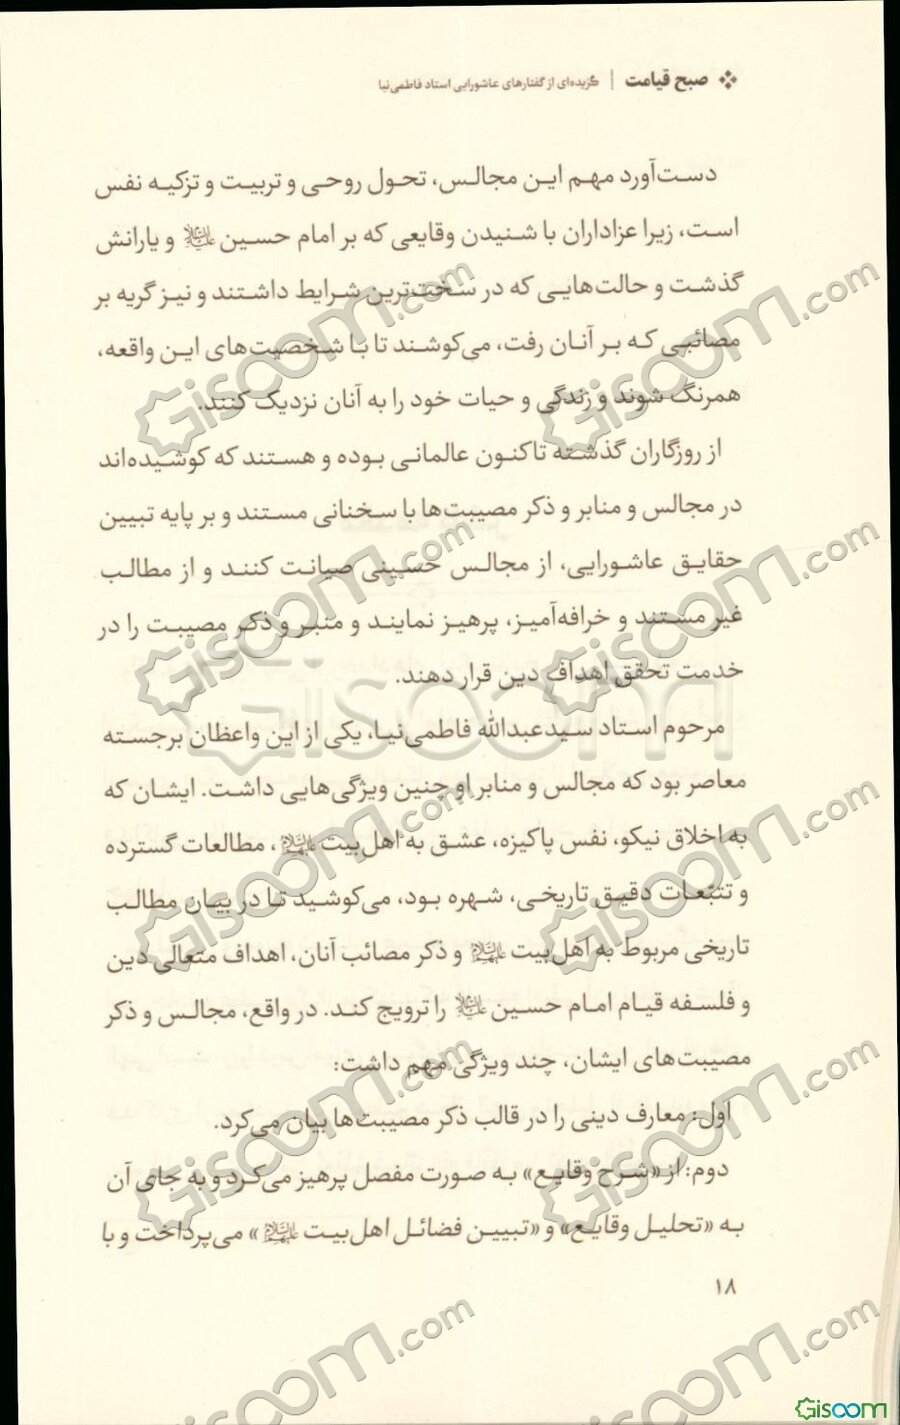 صبح قیامت | گزیده‌ای از گفتارهای عاشورایی استاد فاطمی‌نیا
دست‌آورد مهم این مجالس، تحول روحی و تربیت و تزکیه نفس
است، زیرا عزاداران با شنیدن وقایعی که بر امام حسین علیه‌السلام و یارانش
گذشت و حالت‌هایی که در سخت‌ترین شرایط داشتند و نیز گریه بر
مصائبی که بر آنان رفت، می‌کوشند تا با شخصیت‌های این واقعه،
همرنگ شوند و زندگی و حیات خود را به آنان نزدیک کنند.
از روزگاران گذشته تاکنون عالمانی بوده و هستند که کوشیده‌اند
در مجالس و منابر و ذکر مصیبت‌ها با سخنانی مستند و بر پایه تبیین
حقایق عاشورایی، از مجالس حسینی صیانت کنند و از مطالب
غیر مستند و خرافه‌آمیز، پرهیز نمایند و منبر و ذکر مصیبت را در
خدمت تحقق اهداف دین قرار دهند.
مرحوم استاد سیدعبدالله فاطمی‌نیا، یکی از این واعظان برجسته
معاصر بود که مجالس و منابر او چنین ویژگی‌هایی داشت. ایشان که
به اخلاق نیکو، نفس پاکیزه، عشق به اهل‌بیت علیهم‌السلام، مطالعات گسترده
و تتبّعات دقیق تاریخی، شهره بود، می‌کوشید تا در بیان مطالب
تاریخی مربوط به اهل‌بیت علیهم‌السلام و ذکر مصائب آنان، اهداف متعالی دین
و فلسفه قیام امام حسین علیه‌السلام را ترویج کند. در واقع، مجالس و ذکر
مصیبت‌های ایشان، چند ویژگی مهم داشت:
اول: معارف دینی را در قالب ذکر مصیبت‌ها بیان می‌کرد.
دوم: از «شرح وقایع» به صورت مفصل پرهیز می‌کرد و به جای آن
به «تحلیل وقایع» و «تبیین فضائل اهل‌بیت علیهم‌السلام» می‌پرداخت و با
۱۸
Giscom.com
Gisoom